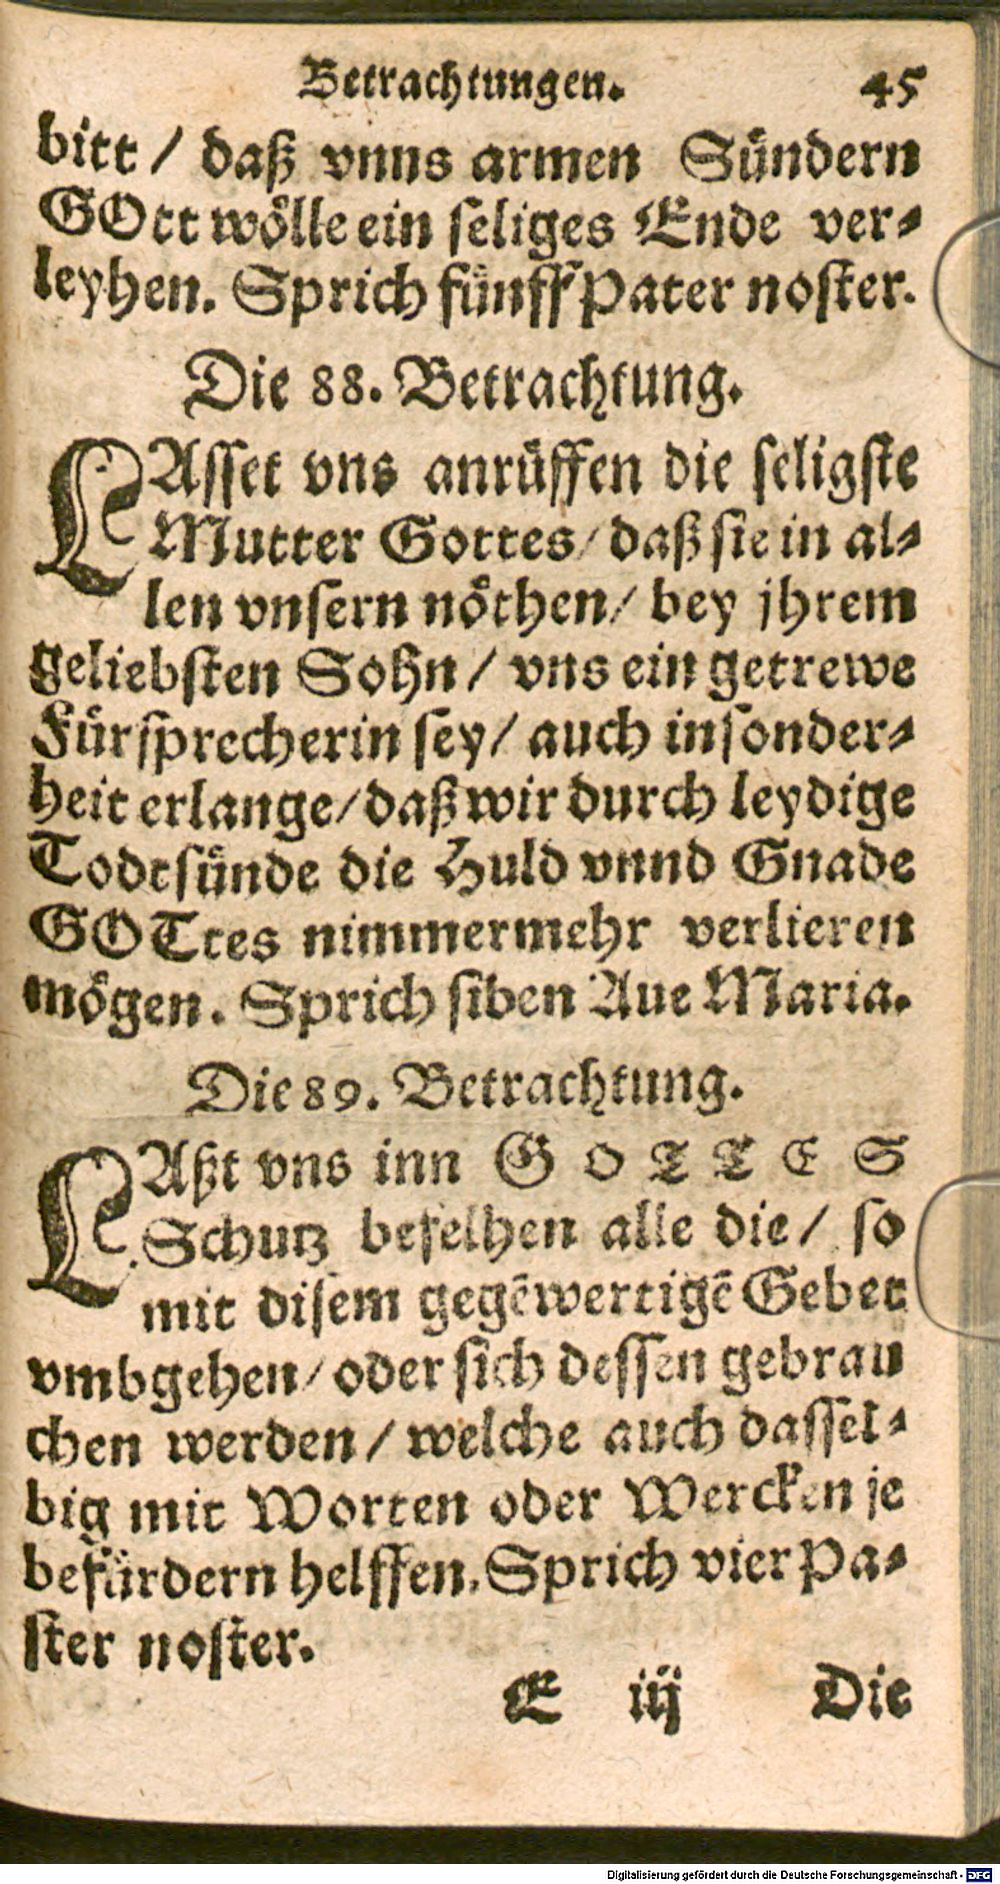 Betrachtungen. 45
bitt / daß vnns armen Sündern
GOtt wölle ein seliges Ende ver-
leyhen. Sprich fünff Pater noster.
Die 88. Betrachtung.
LAsset vns anrüffen die seligste
Mutter Gottes / daß sie in al-
len vnsern nöthen / bey jhrem
geliebsten Sohn / vns ein getrewe
Fürsprecherin sey / auch insonder-
heit erlange / daß wir durch leydige
Todtsünde die Huld vnnd Gnade
GOTtes nimmermehr verlieren
mögen. Sprich siben Aue Maria.
Die 89. Betrachtung.
LAßt vns inn GOTTES
Schutz befelhen alle die / so
mit disem gegēwertigē Gebet
vmbgehen / oder sich dessen gebrau
chen werden / welche auch dassel-
big mit Worten oder Wercken je
befürdern helffen. Sprich vier Pa-
ster noster.
E iij Die
Digitalisierung gefördert durch die Deutsche Forschungsgemeinschaft - DFG